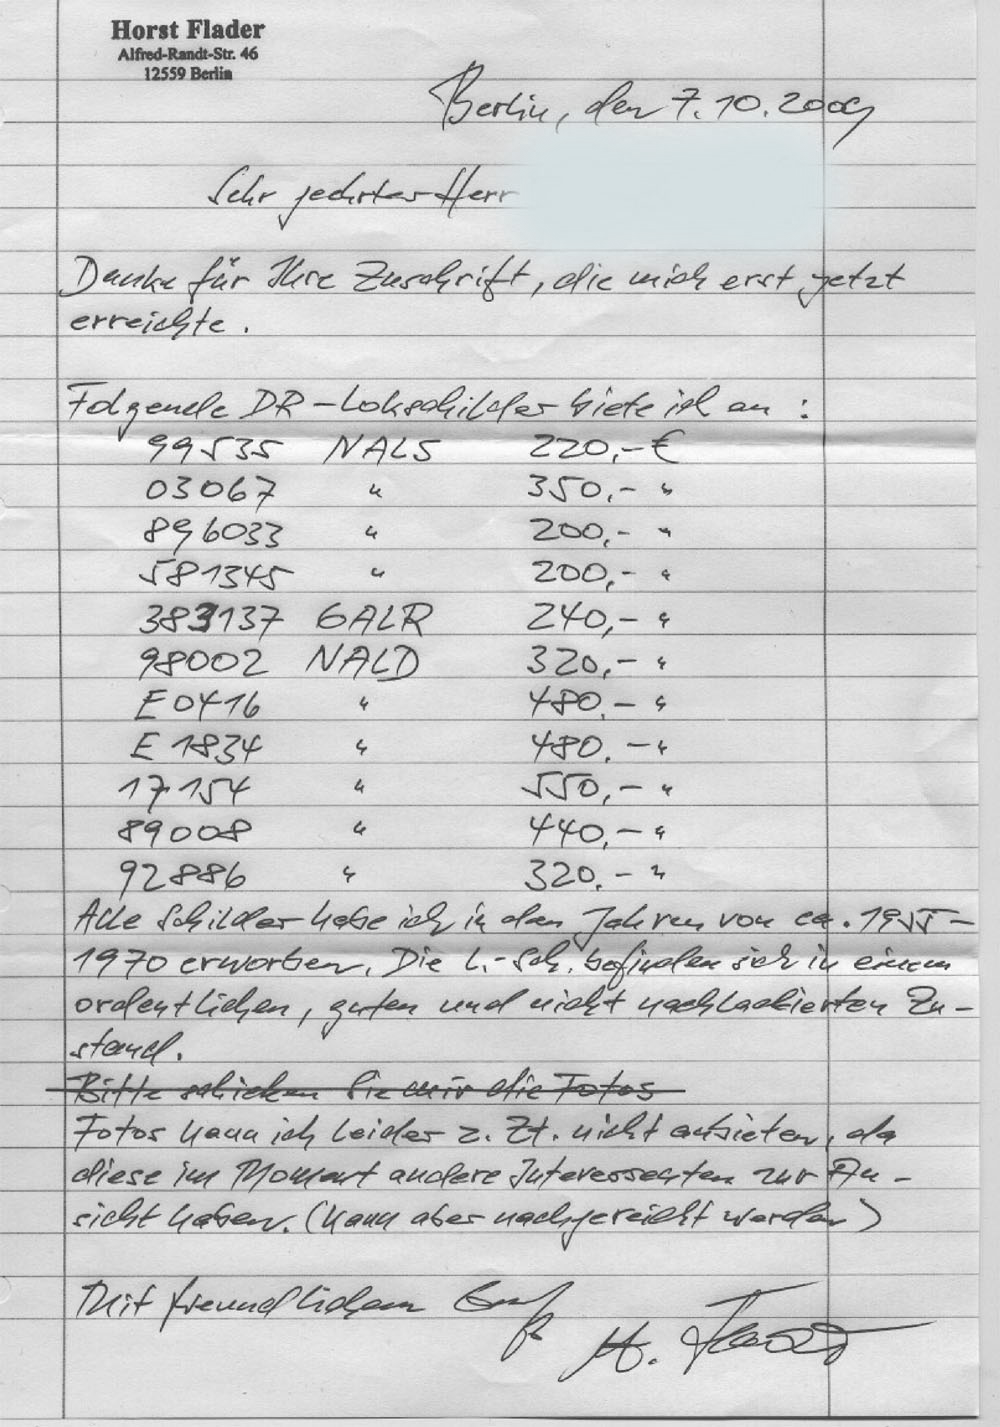 Horst Flader
Alfred-Randt-Str. 46
12559 Berlin
Berlin, den 7.10.2009
Sehr geehrter Herr
Danke für Ihre Zuschrift, die mich erst jetzt
erreichte.
Folgende DR-Lokschilder biete ich an:
99535 NALS 220,- €
03067 " 350,- "
896033 " 200,- "
581345 " 200,- "
383137 GALR 240,- "
98002 NALD 320,- "
E0416 " 480.- "
E 1834 " 480.- "
17 154 " 550,- "
89008 " 440,- "
92886 " 320.- "
Alle Schilder habe ich in den Jahren von ca. 1955-
1970 erworben. Die L.-Sch. befinden sich in einem
ordentlichen, guten und nicht nachlackierten Zu-
stand.
Bitte schicken Sie mir die Fotos
Fotos kann ich leider z. Zt. nicht anbieten, da
diese im Moment andere Interessenten zur An-
sicht haben. (Kann aber nachgereicht werden)
Mit freundlichem Gruß
H. Flader